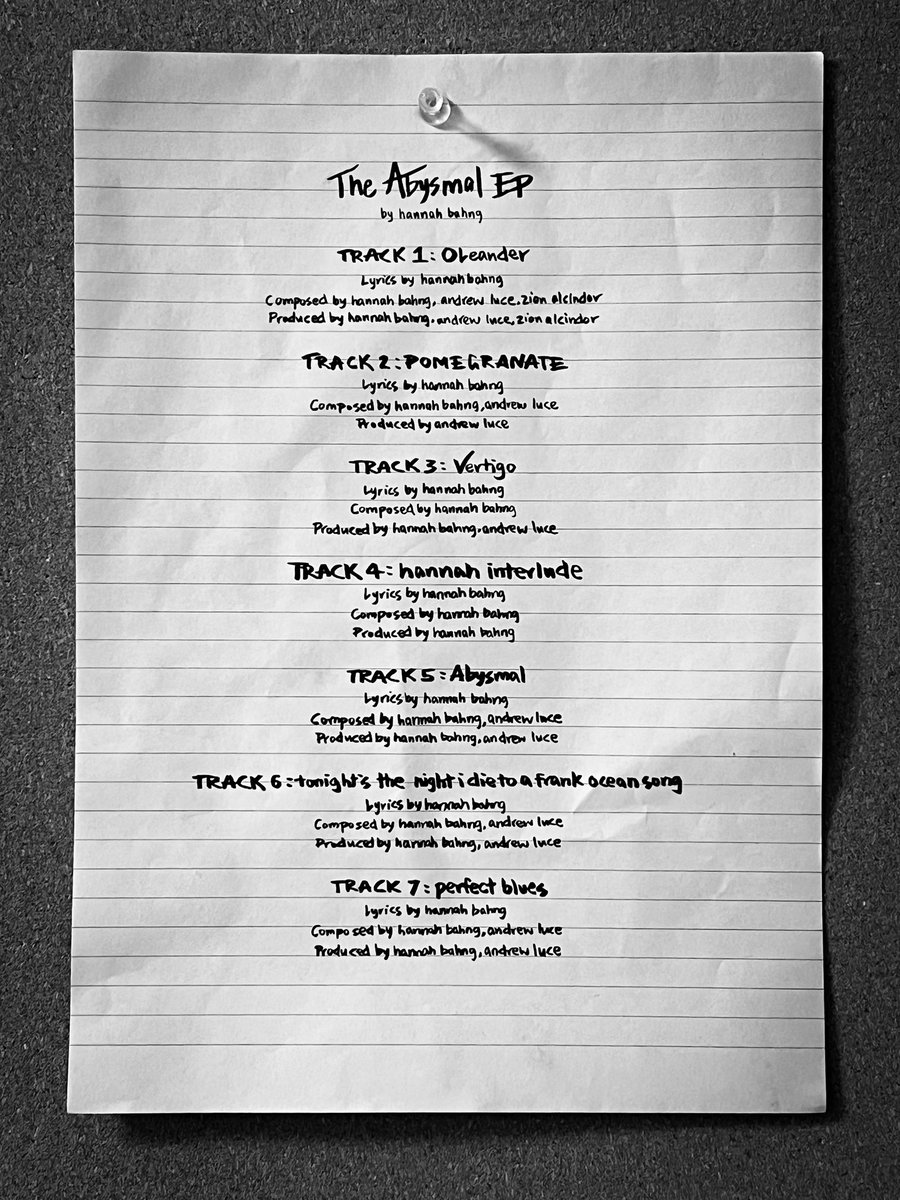 The Abysmal EP
by hannah bahng
TRACK 1: Oleander
Lyrics by hannah bahng
Composed by hannah bahng, andrew luce, zion alcindor
Produced by hannah bahng, andrew luce, zion alcindor
TRACK 2: POMEGRANATE
Lyrics by hannah bahng
Composed by hannah bahng, andrew luce
Produced by andrew luce
TRACK 3: Vertigo
Lyrics by hannah bahng
Composed by hannah bahng
Produced by hannah bahng, andrew luce
TRACK 4: hannah interlude
Lyrics by hannah bahng
Composed by hannah bahng
Produced by hannah bahng
TRACK 5: Abysmal
Lyrics by hannah bahng
Composed by hannah bahng, andrew luce
Produced by hannah bahng, andrew luce
TRACK 6: tonight's the night i die to a frank ocean song
Lyrics by hannah bahng
Composed by hannah bahng, andrew luce
Produced by hannah bahng, andrew luce
TRACK 7: perfect blues
Lyrics by hannah bahng
Composed by hannah bahng, andrew luce
Produced by hannah bahng, andrew luce